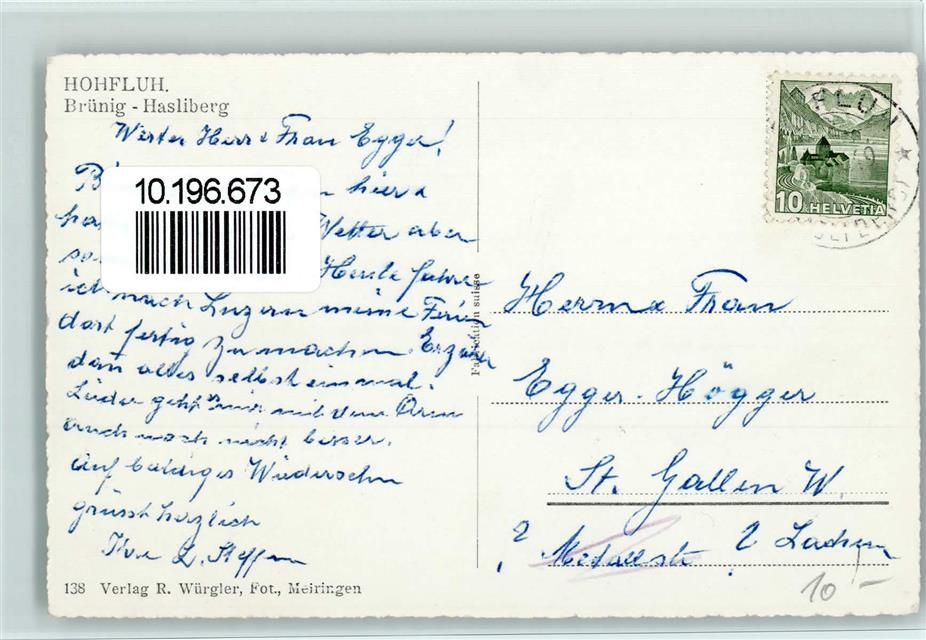 HOHFLUH.
Brünig - Hasliberg
Werter Herr & Frau Egger!
10.196.673
hier
Wetter aber
Heute fahre
ich nach Luzern meine Ferien
dort fertig zu machen. Erzähle
dan alles selbst einmal.
Leider geht's mir mit dem Arm
auch noch nicht besser.
Auf baldiges Wiedersehn
grüsst herzlich
Ihre L. Steffen
138 Verlag R. Würgler, Fot., Meiringen
Fabrication suisse
10 HELVETIA
FLUH
Herrn & Frau
Egger-Högger
St. Gallen W.
? Metallstr. ? Lachen
10 –